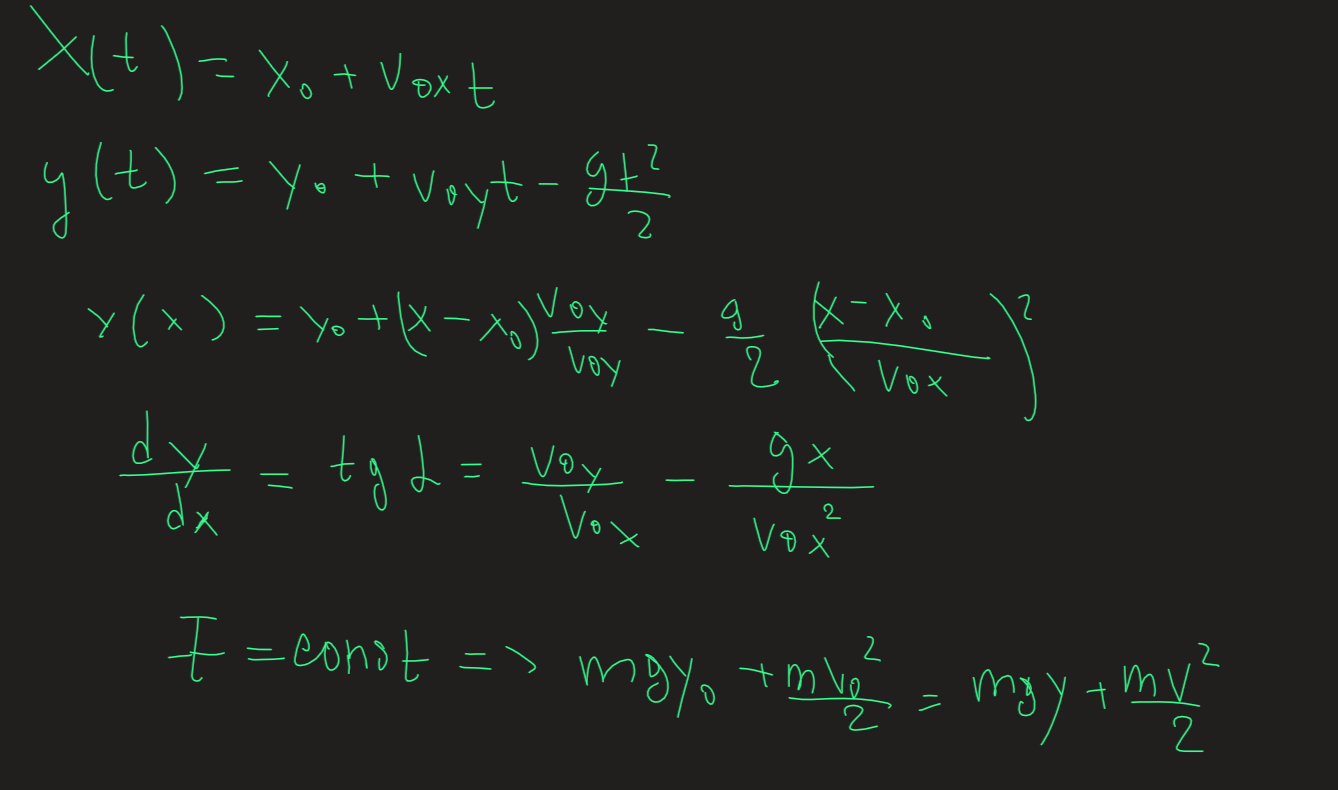 X(t) = x₀ + v₀ₓ t
y(t) = y₀ + v₀y t - gt²/2
y(x) = y₀ + (x - x₀) v₀y/v₀y - g/2 ((x - x₀)/v₀ₓ)²
dy/dx = tg α = v₀y/v₀ₓ - gx/v₀ₓ²
E = const => mgy₀ + mv₀²/2 = mgy + mv²/2